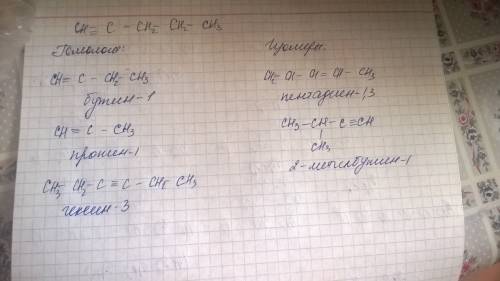 CH ≡ C - CH₂ - CH₂ - CH₃
Гомологи:
CH ≡ C - CH₂ - CH₃
бутин-1
CH ≡ C - CH₃
пропин-1
CH₃ - CH₂ - C ≡ C - CH₂ - CH₃
гексин-3
Изомеры:
CH₂ = CH - CH = CH - CH₃
пентадиен-1,3
CH₃ - CH - C ≡ CH
|
CH₃
2-метилбутин-1